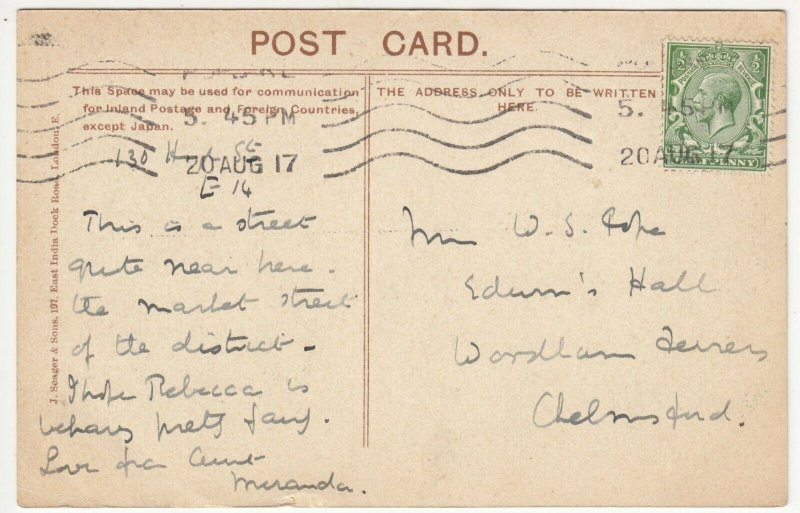 POST CARD.
This Space may be used for communication
for Inland Postage and Foreign Countries,
except Japan.
THE ADDRESS ONLY TO BE WRITTEN
HERE.
J. Seager & Sons, 197, East India Dock Road, London, E.
5. 45 PM
20 AUG 17
5. 45 PM
20 AUG 17
½ ½
PENNY
130 St
E 14
This is a street
quite near here.
the market street
of the district -
I hope Rebecca is
behaving pretty fairly.
Love from Aunt
Miranda.
W. S. Pope
Edwin's Hall
Woodham Ferrers
Chelmsford.